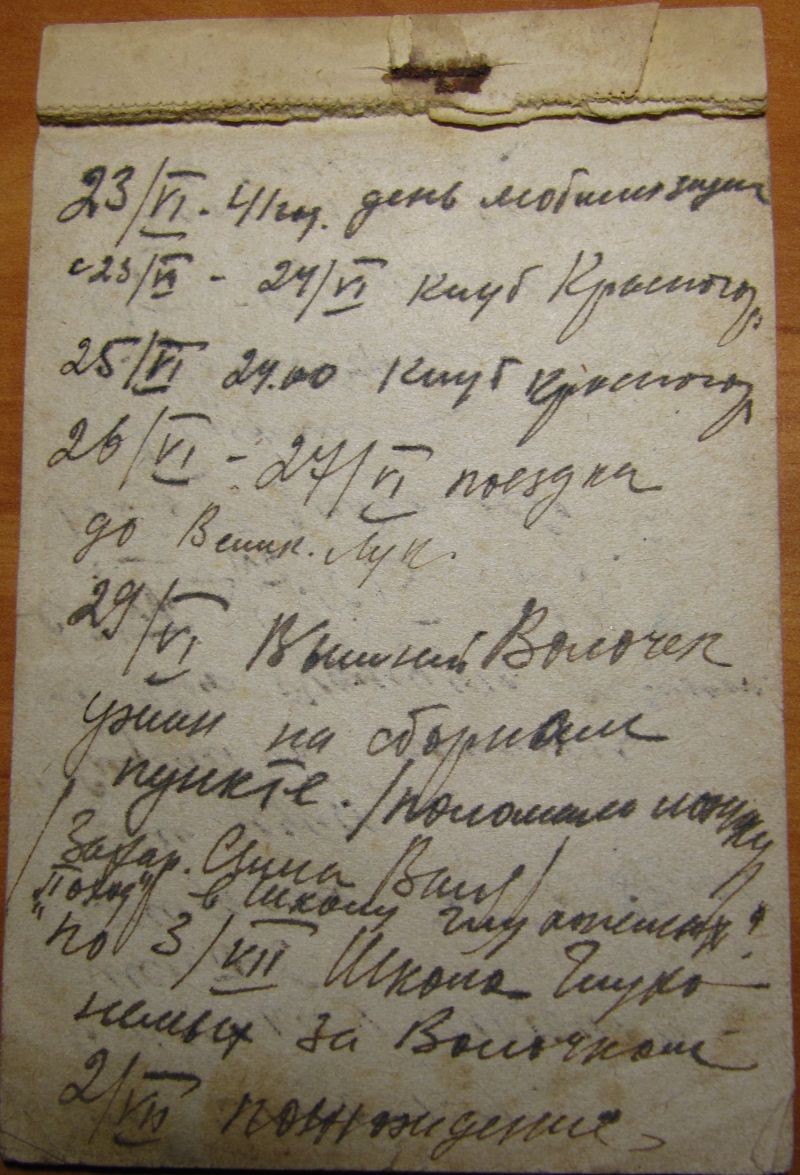 23/VI - 41 год. день мобилизации
с 23/VI - 24/VI клуб Красногор
25/VI 24.00 клуб Красногор
26/VI - 27/VI поездка
до Велик. Лук.
29/VI Вышний Волочек
ужин на сборном
пункте. /поломали ложку
Захар. Сима Вил/
"Поход" в школу глухонемых"
по 3/VII Школа Глухо
немых за Волочком
2/VII